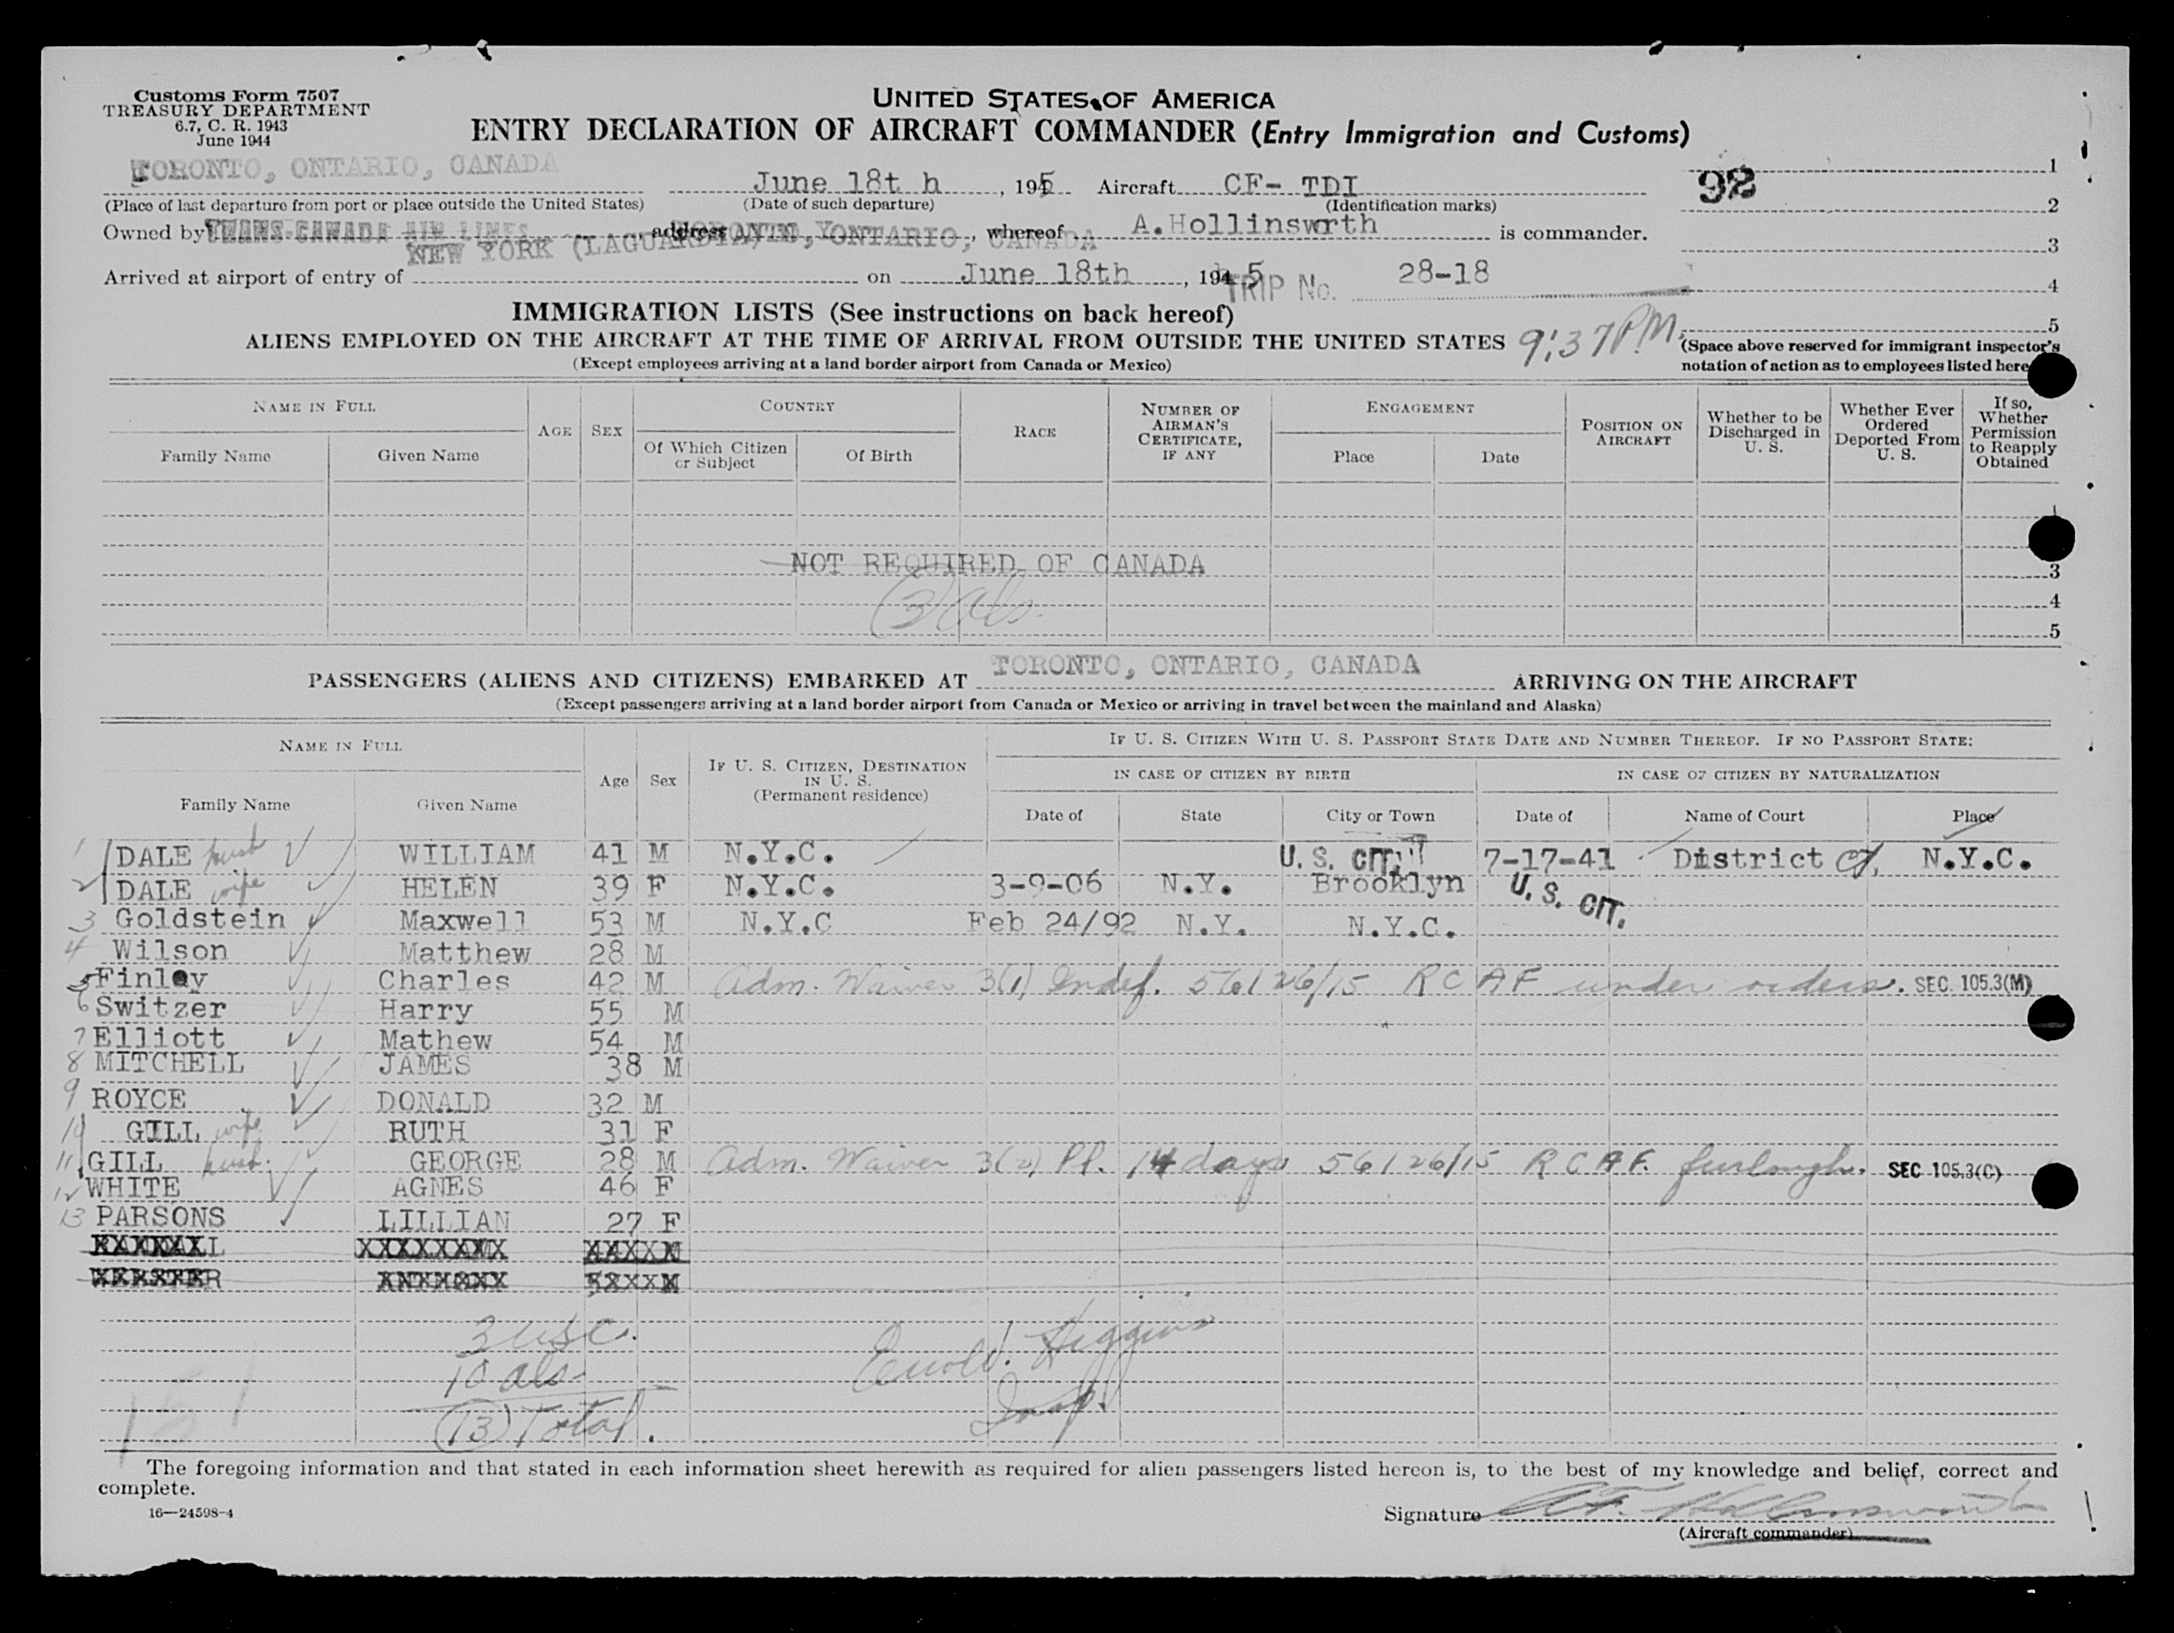 Customs Form 7507
TREASURY DEPARTMENT
6.7, C. R. 1943
June 1944
UNITED STATES OF AMERICA
ENTRY DECLARATION OF AIRCRAFT COMMANDER (Entry Immigration and Customs)
TORONTO, ONTARIO, CANADA June 18t h, 195 Aircraft CF- TDI 92 1
(Place of last departure from port or place outside the United States) (Date of such departure) (Identification marks) 2
Owned by TRANS-CANADA AIR LINES, address TORONTO, ONTARIO, CANADA, whereof A.Hollinswrth is commander. 3
NEW YORK (LAGUARDIA) N.Y.
Arrived at airport of entry of on June 18th, 194 5 TRIP No. 28-18 4
IMMIGRATION LISTS (See instructions on back hereof) 5
ALIENS EMPLOYED ON THE AIRCRAFT AT THE TIME OF ARRIVAL FROM OUTSIDE THE UNITED STATES 9:37 P.M.
(Except employees arriving at a land border airport from Canada or Mexico)
(Space above reserved for immigrant inspector's
notation of action as to employees listed here
NAME IN FULL AGE SEX COUNTRY RACE NUMBER OF AIRMAN'S CERTIFICATE, IF ANY ENGAGEMENT POSITION ON AIRCRAFT Whether to be Discharged in U. S. Whether Ever Ordered Deported From U. S. If so, Whether Permission to Reapply Obtained
Family Name Given Name Of Which Citizen or Subject Of Birth Place Date
1
NOT REQUIRED OF CANADA 3
(3) als. 4
5
PASSENGERS (ALIENS AND CITIZENS) EMBARKED AT TORONTO, ONTARIO, CANADA ARRIVING ON THE AIRCRAFT
(Except passengers arriving at a land border airport from Canada or Mexico or arriving in travel between the mainland and Alaska)
NAME IN FULL Age Sex IF U. S. CITIZEN, DESTINATION IN U. S. (Permanent residence) IF U. S. CITIZEN WITH U. S. PASSPORT STATE DATE AND NUMBER THEREOF. IF NO PASSPORT STATE:
IN CASE OF CITIZEN BY BIRTH IN CASE OF CITIZEN BY NATURALIZATION
Family Name Given Name Date of State City or Town Date of Name of Court Place
1 DALE husb WILLIAM 41 M N.Y.C. U. S. CIT. 7-17-41 District Ct. N.Y.C.
2 DALE wife HELEN 39 F N.Y.C. 3-9-06 N.Y. Brooklyn U. S. CIT.
3 Goldstein Maxwell 53 M N.Y.C Feb 24/92 N.Y. N.Y.C.
4 Wilson Matthew 28 M
5 Finley Charles 42 M Adm. Waiver 3(1) Indef. 56126/15 RCAF under orders. SEC. 105.3(M)
6 Switzer Harry 55 M
7 Elliott Mathew 54 M
8 MITCHELL JAMES 38 M
9 ROYCE DONALD 32 M
10 GILL wife RUTH 31 F
11 GILL husb. GEORGE 28 M Adm. Waiver 3(2) Pl. 14 days 56126/15 RCAF. furlough. SEC 105.3(C)
12 WHITE AGNES 46 F
13 PARSONS LILLIAN 27 F
3 USC.
10 als
(13) Total.
Insp.
The foregoing information and that stated in each information sheet herewith as required for alien passengers listed hereon is, to the best of my knowledge and belief, correct and
complete.
16—24598-4
Signature A.F. Hollinsworth
(Aircraft commander)